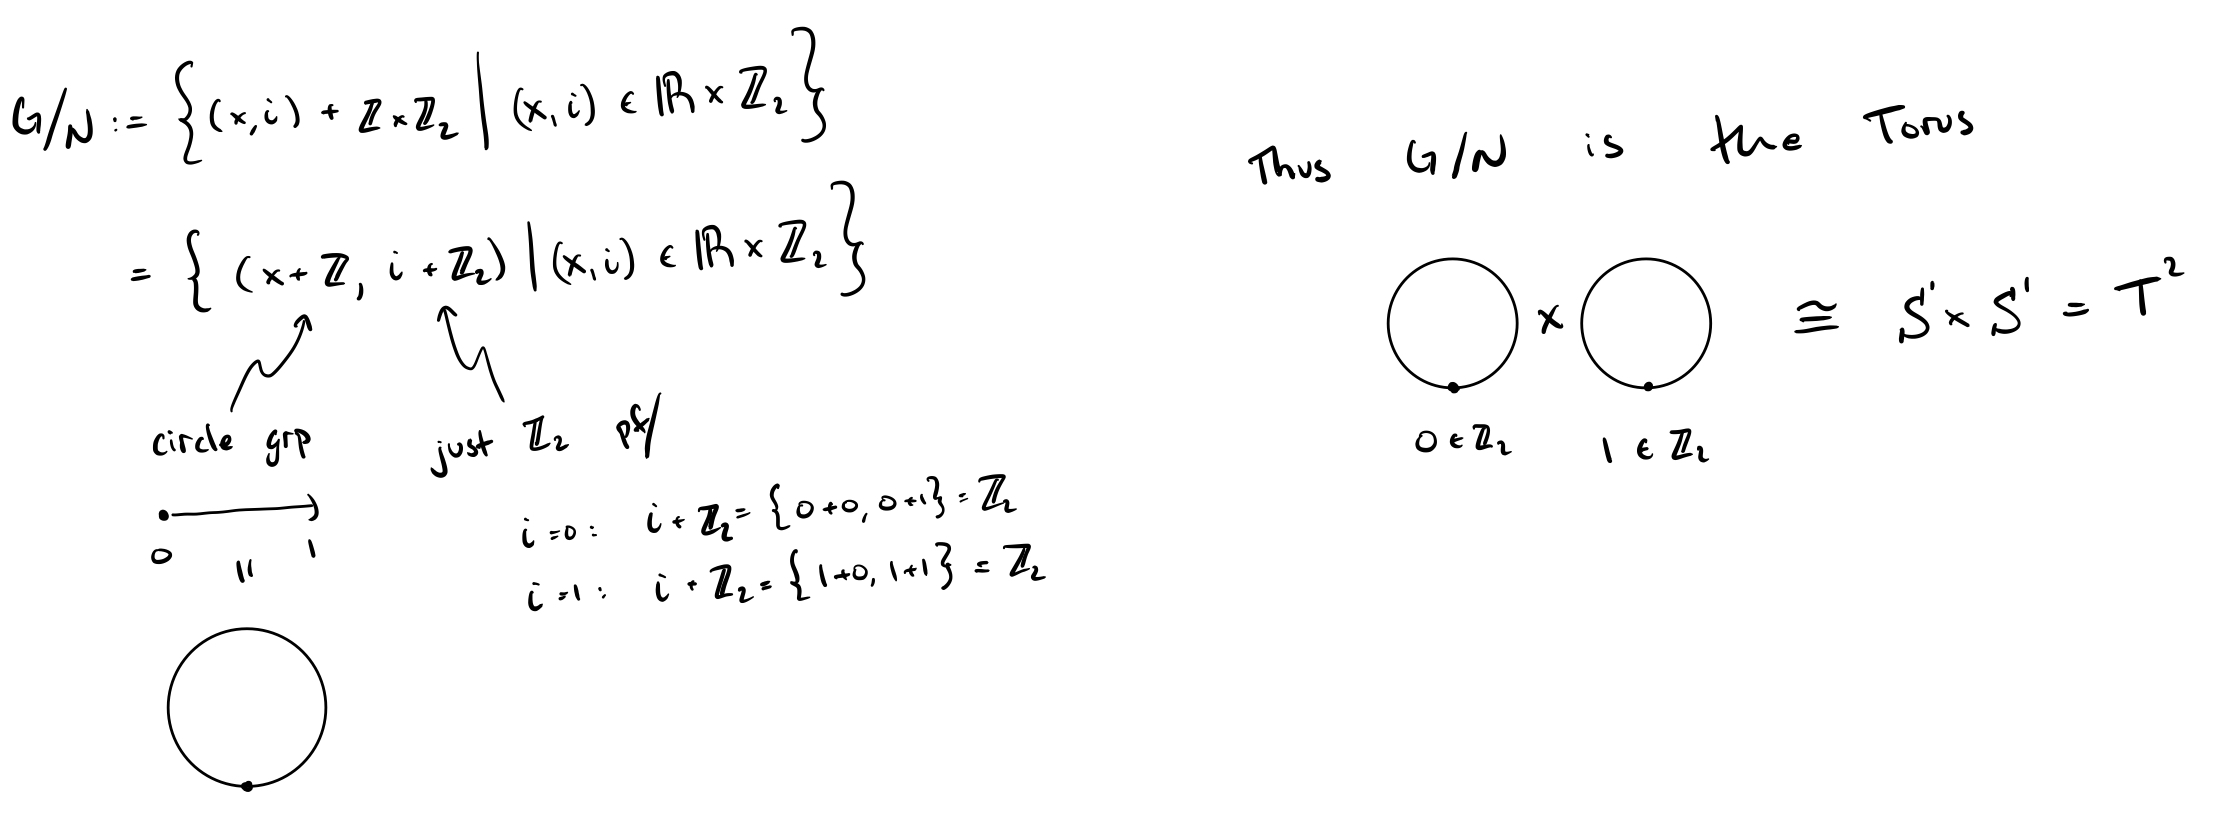 G/N := { (x,i) + ℤ×ℤ₂ | (x,i) ∈ ℝ×ℤ₂ }
= { (x+ℤ, i+ℤ₂) | (x,i) ∈ ℝ×ℤ₂ }
circle grp
just ℤ₂ pf/
0 1
||
i=0: i+ℤ₂ = {0+0, 0+1} = ℤ₂
i=1: i+ℤ₂ = {1+0, 1+1} = ℤ₂
Thus G/N is the Torus
× ≅ S¹×S¹ = T²
0∈ℤ₂ 1∈ℤ₂